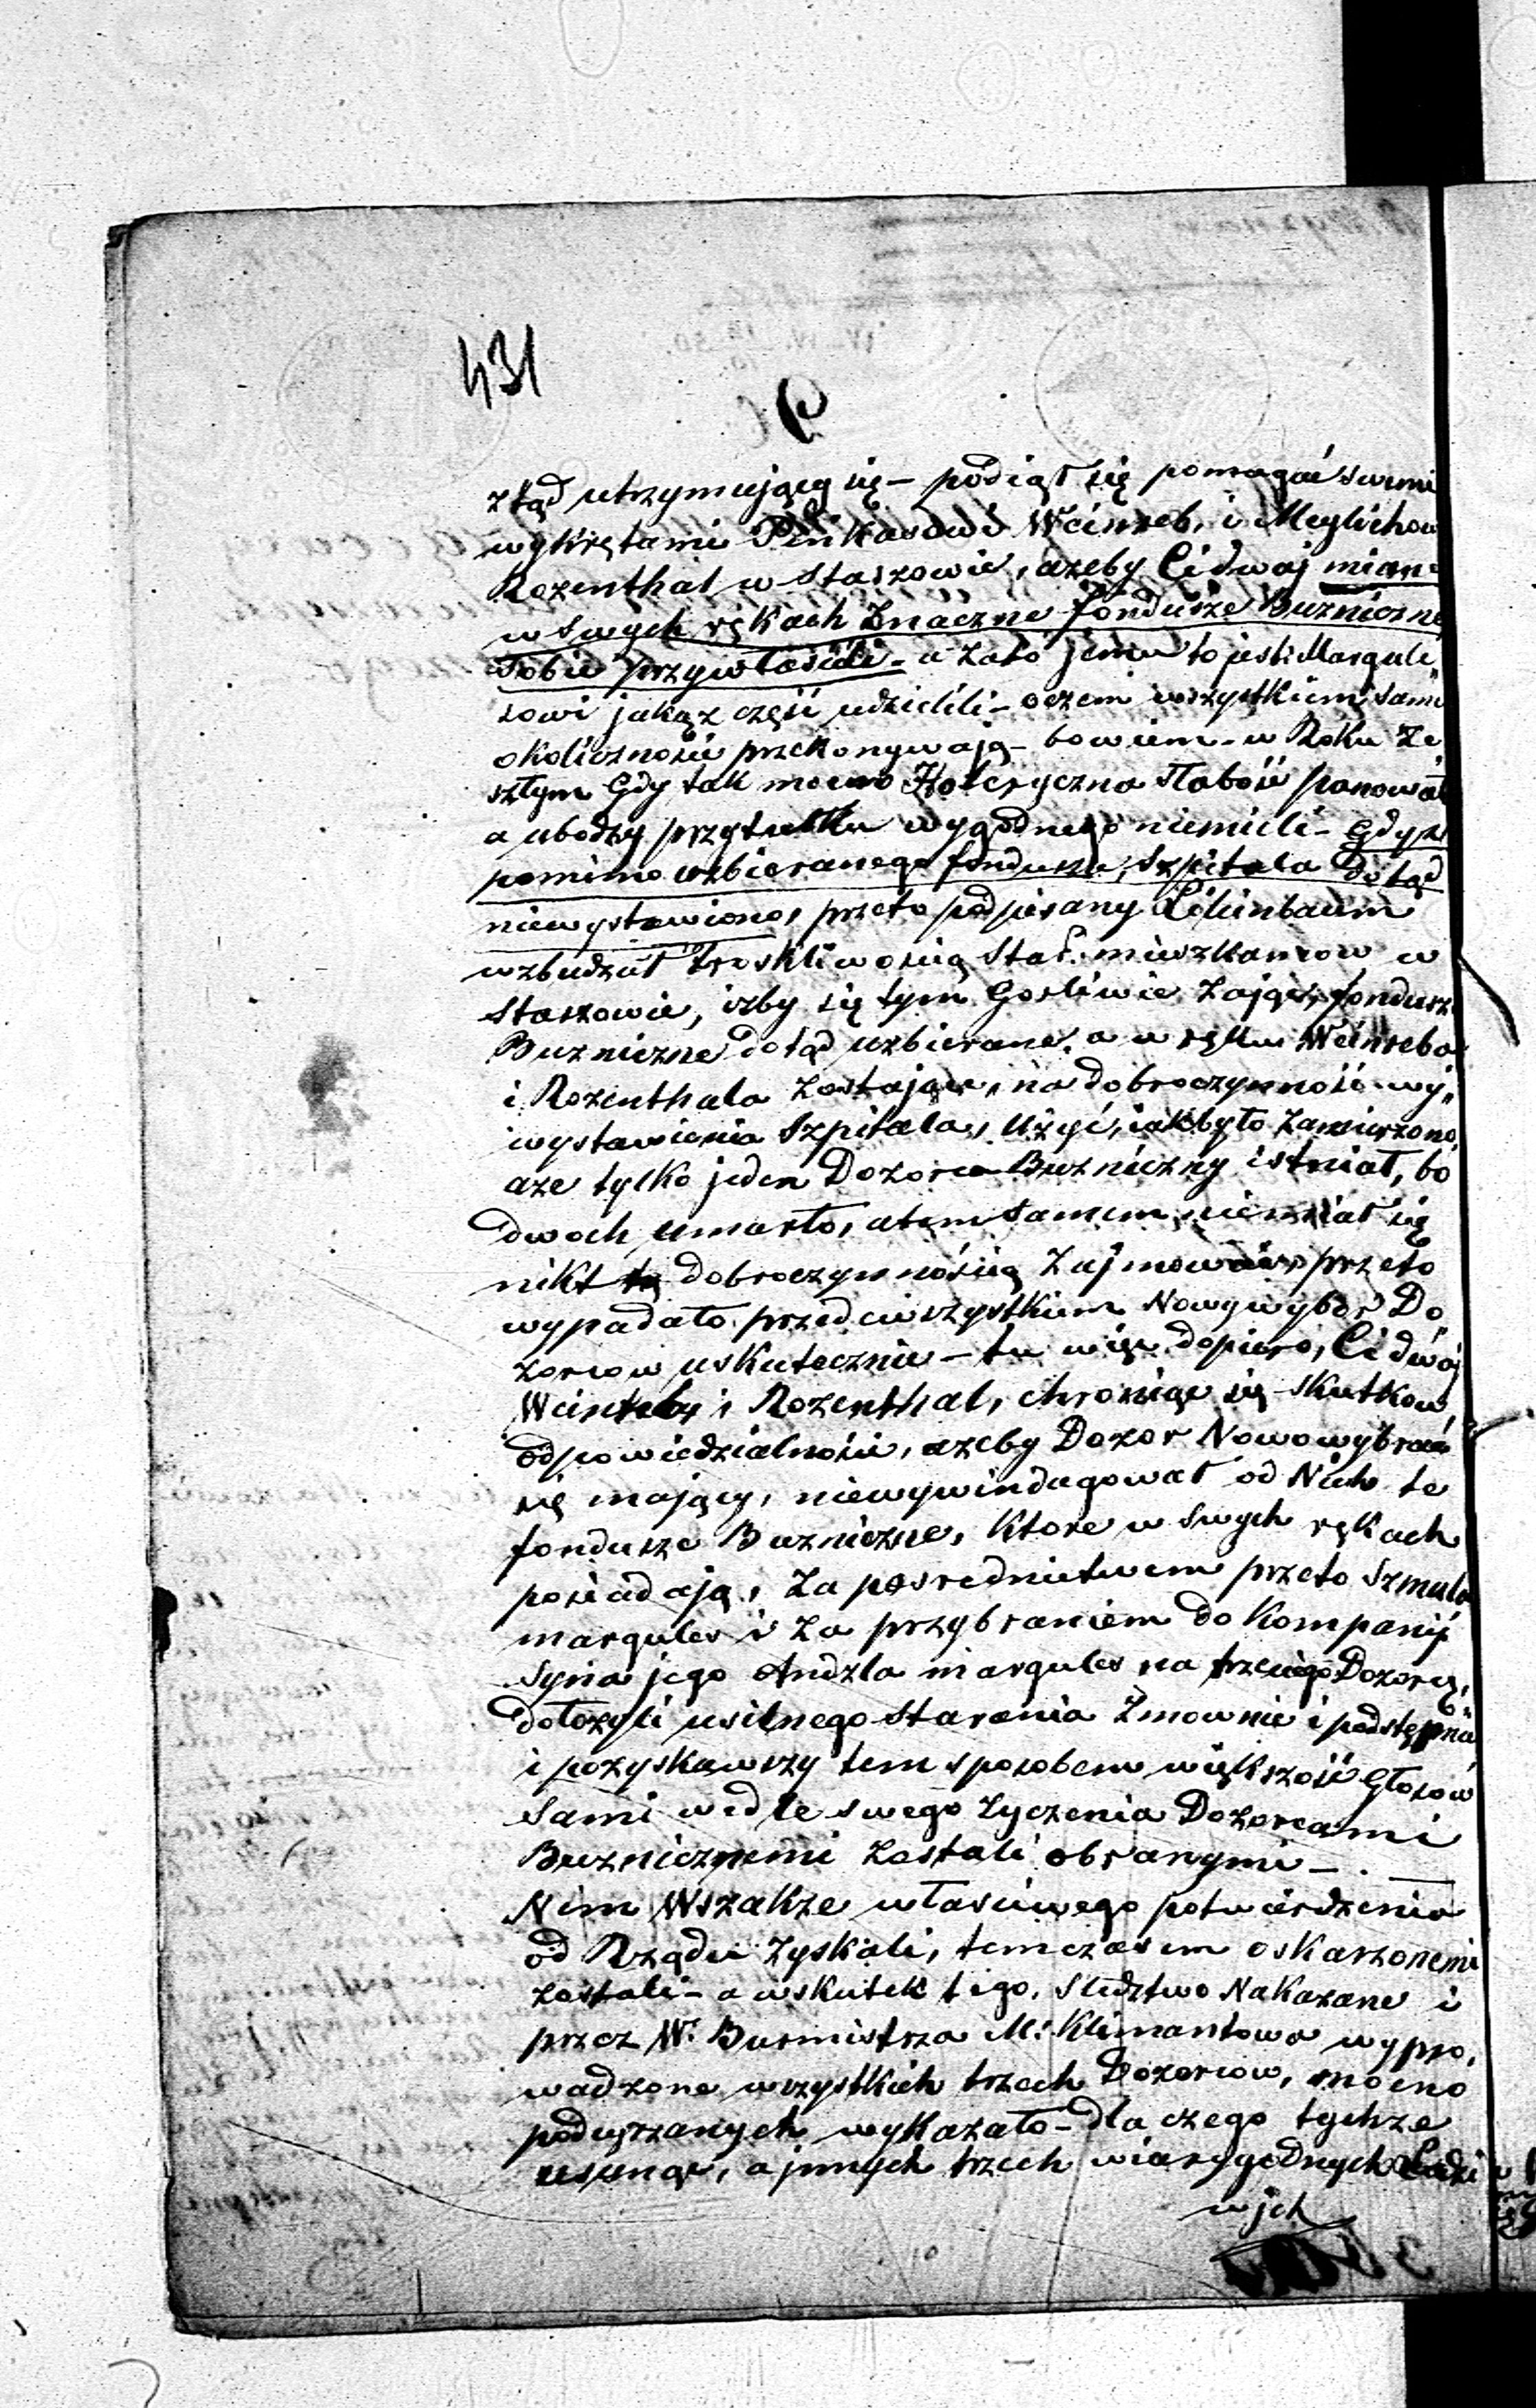 431
złąd utrzymujący się – podiął się pomagać swemi
wykrętami Pinkasowi Weinreb, i Meylichow
Rozenthal w Staszowie, ażeby Ci dwaj miane
w swych rękach znaczne fundusze Buzniczne
sobie przywłaścili – a zato jemu to jest: Margule,
sowi jakąż część udzielili – oczem wszystkiem same
okoliczności przekonywają – bowiem – w Roku ze
szłym Gdy tak mocno Holeryczna słabość panował
a ubodzy przytułku wygodnego niemieli – Gdyż
pomimo uzbieranego funduszu, Szpitala dotąd
niewystawiono, przeto podpisany Lilienbaum
wzbudzał troskliwością Star: mieszkancow w
Staszowie, iżby się tym Gorliwie zająć, fundusz
Buzniczne dotąd uzbierane, a w ręku Weinreba
i Rozenthala zostające, na dobroczynność wy„
wystawienia Szpitala, użyć, iak było zamierzono,
aże tylko jeden Dozorca Buzniczny istniał, bo
dwoch umarło, atem samem, niemiał się
nikt tą dobroczynnością zajmować, przeto
wypadało przedewszystkiem Nowy wybor Do„
zorcow uskutecznić – tu więc dopiero, Ci dwaj
Weinreb i Rozenthal, chroniąc się skutkow
odpowiedzialności, ażeby Dozor Nowowybrać
się mający, niewywindagował od Nich te
fundusze Buzniczne, ktore w swych rękach
posiadają, za posrednictwem przeto Szmula
margules i za przybraniem do Kompanij
Syna jego Andzla margules na trzeciego Dozorcę,
dołożyli usilnego starania zmownie i podstępnie
i pozyskawszy tem sposobem większość Głosow
Sami wedle swego życzenia Dozorcami
Buznicznemi zostali obranymi –
Nim Wszakże własciwego potwierdzenia
od Rządu zyskali, temczasem oskarzonemi
zostali – a wskutek tego, Sledztwo Nakazane i
przez W. Burmistrza M: Klimontowa wypro„
wadzone wszystkich trzech Dozorcow, mocno
podeyrzanych wykazało – dla czego tychże
usunąć, a jnnych trzech wiarygodnych Ludzi
w jch